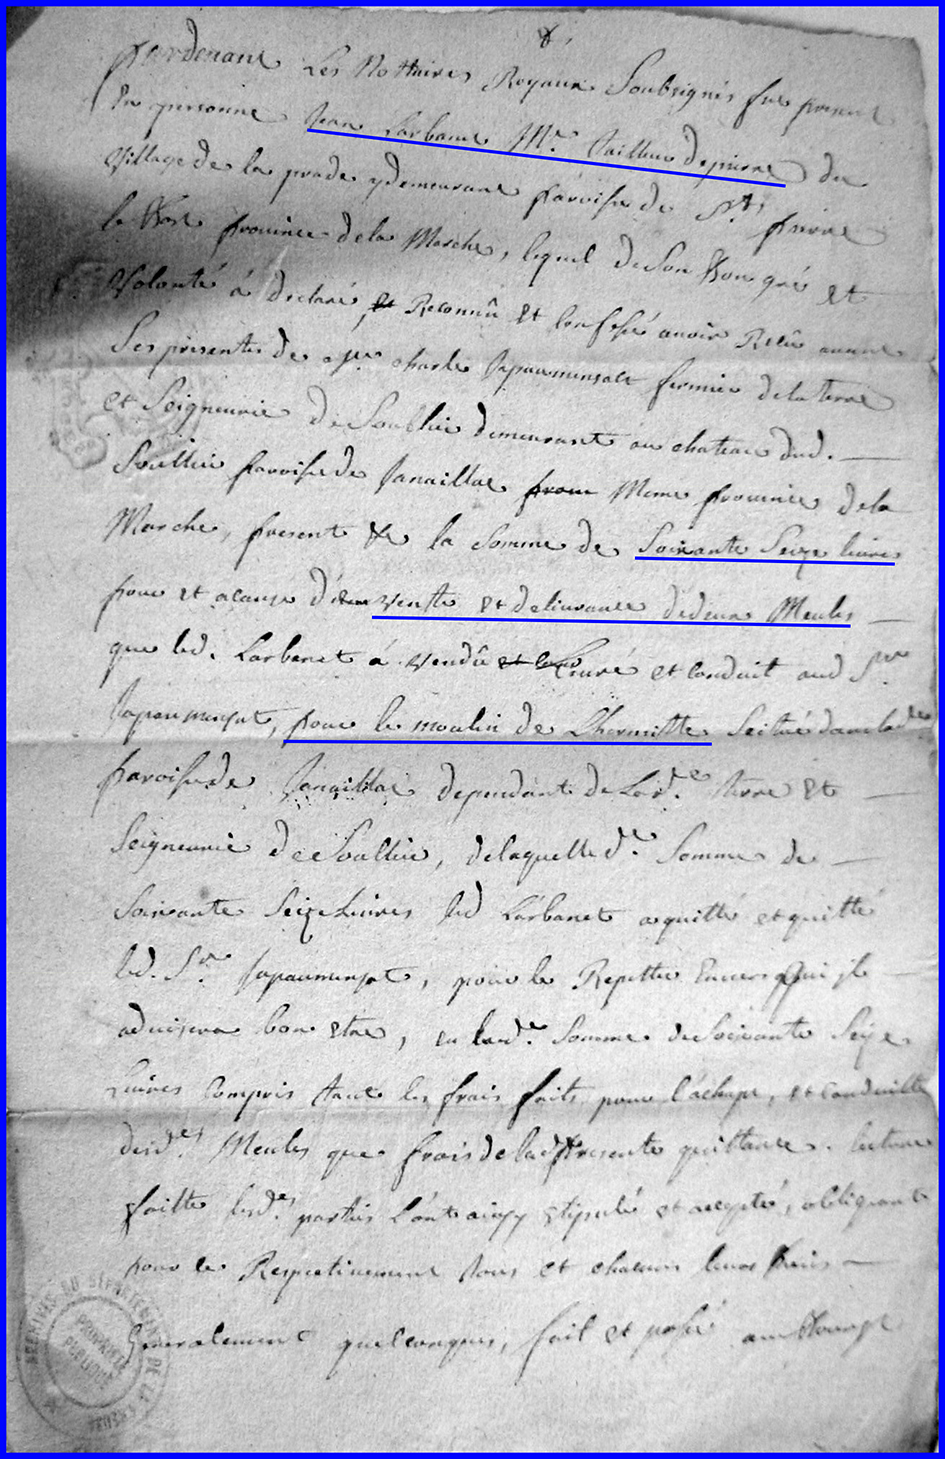 pardevant Les Nottaires Royaux Soubsignés fut present
En personne Jean Larbanet Me. tailleur de pierre du
Village de la prade y demeurant parroisse de St. pierre
le Bost province de la Marche, lequel de Son Bon gré et
Volonté à declaré et Reconnû et confessé avoir Reçû avant
Ses presentes de Mre charle fermier de la terre
et Seigneurie de Soullier demeurant au chateau dud.
Soullier parroisse de Janaillac prou Meme province de la
Marche, present & la Somme de Soixante Seize livres
pour et acause de vente et delivrance de deux Meules
que led. Larbanet à Vendû et livré et conduit aud Sr.
pour le moulin de Lhermitte Scitué dans lad
parroisse de Janaillac dependant de Lad. terre et
Seigneurie de Soullier, de laquelle de. Somme de
Soixante Seize Livres led Larbanet a quitté et quitte
led. Sr. pour le Repetter Envers qui il
advisera bon etre, en lade. Somme de Soixante Seize
Livres Compris tant les frais faits pour l'achapt, et conduitte
desdes. Meules que frais de lad presente quittance. lecture
faitte lesdes. parties L'ont ainsy stipulé et accepté, obligeant
pour ce Respectivement tous et chacuns leurs Biens
Generalement quelconques, fait et passé au Bourg
ARCHIVES DU DÉPARTEMENT DE LA CREUSE
PROPRIÉTÉ PUBLIQUE